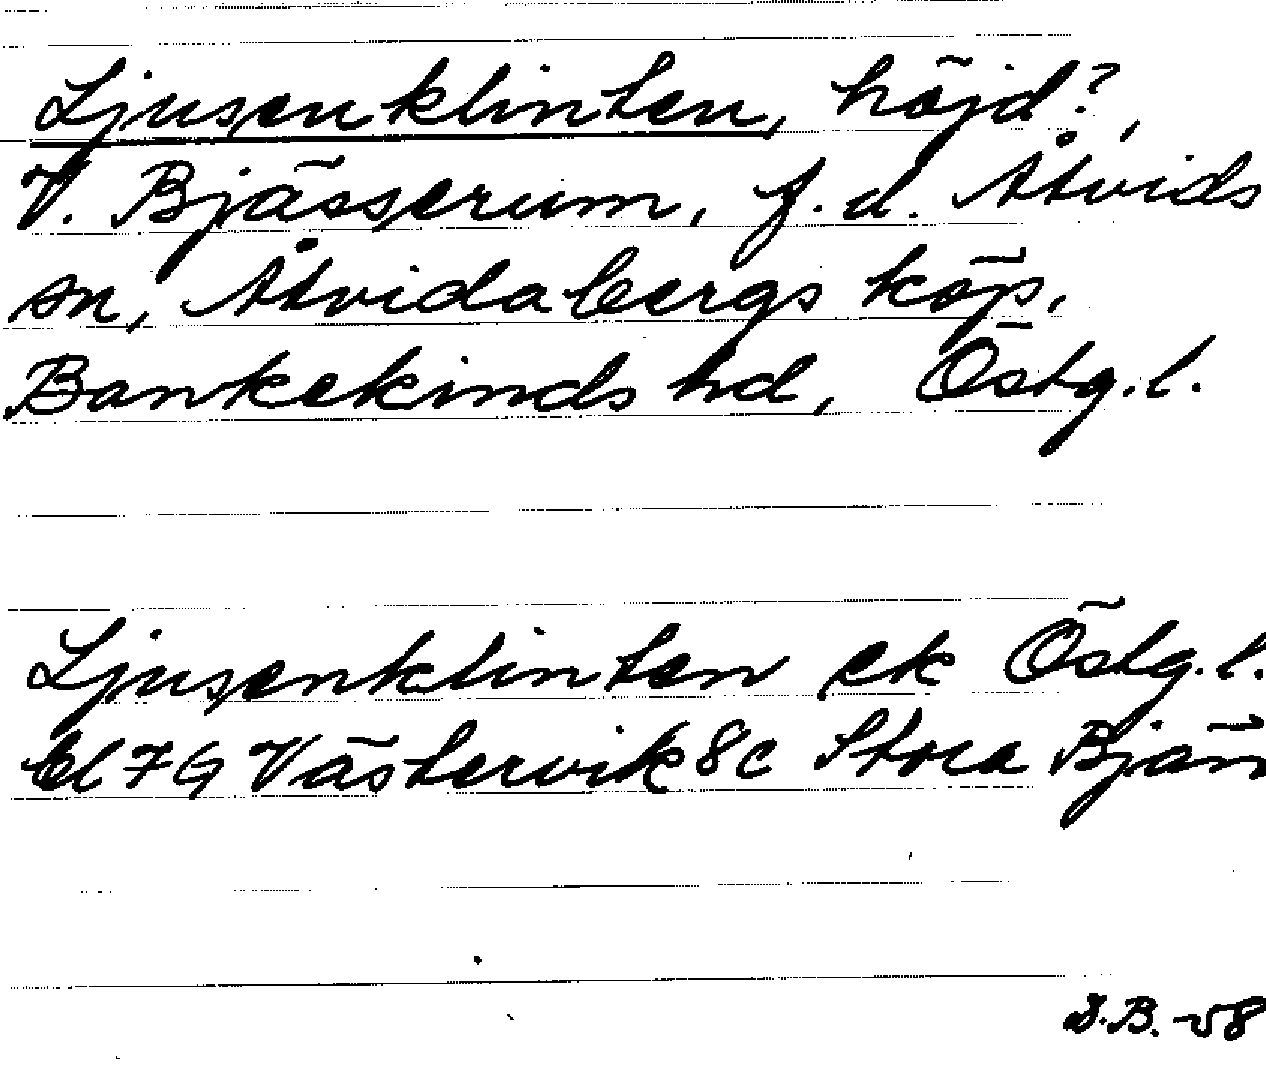 Ljusenklinten, höjd?,
V. Bjässerum, f.d. Åtvids
sn, Åtvidabergs köp,
Bankekinds hd, Östg.l.
Ljusenklinten ek Östg.l.
Bl 7G Västervik 8c Stora Bjän
-58